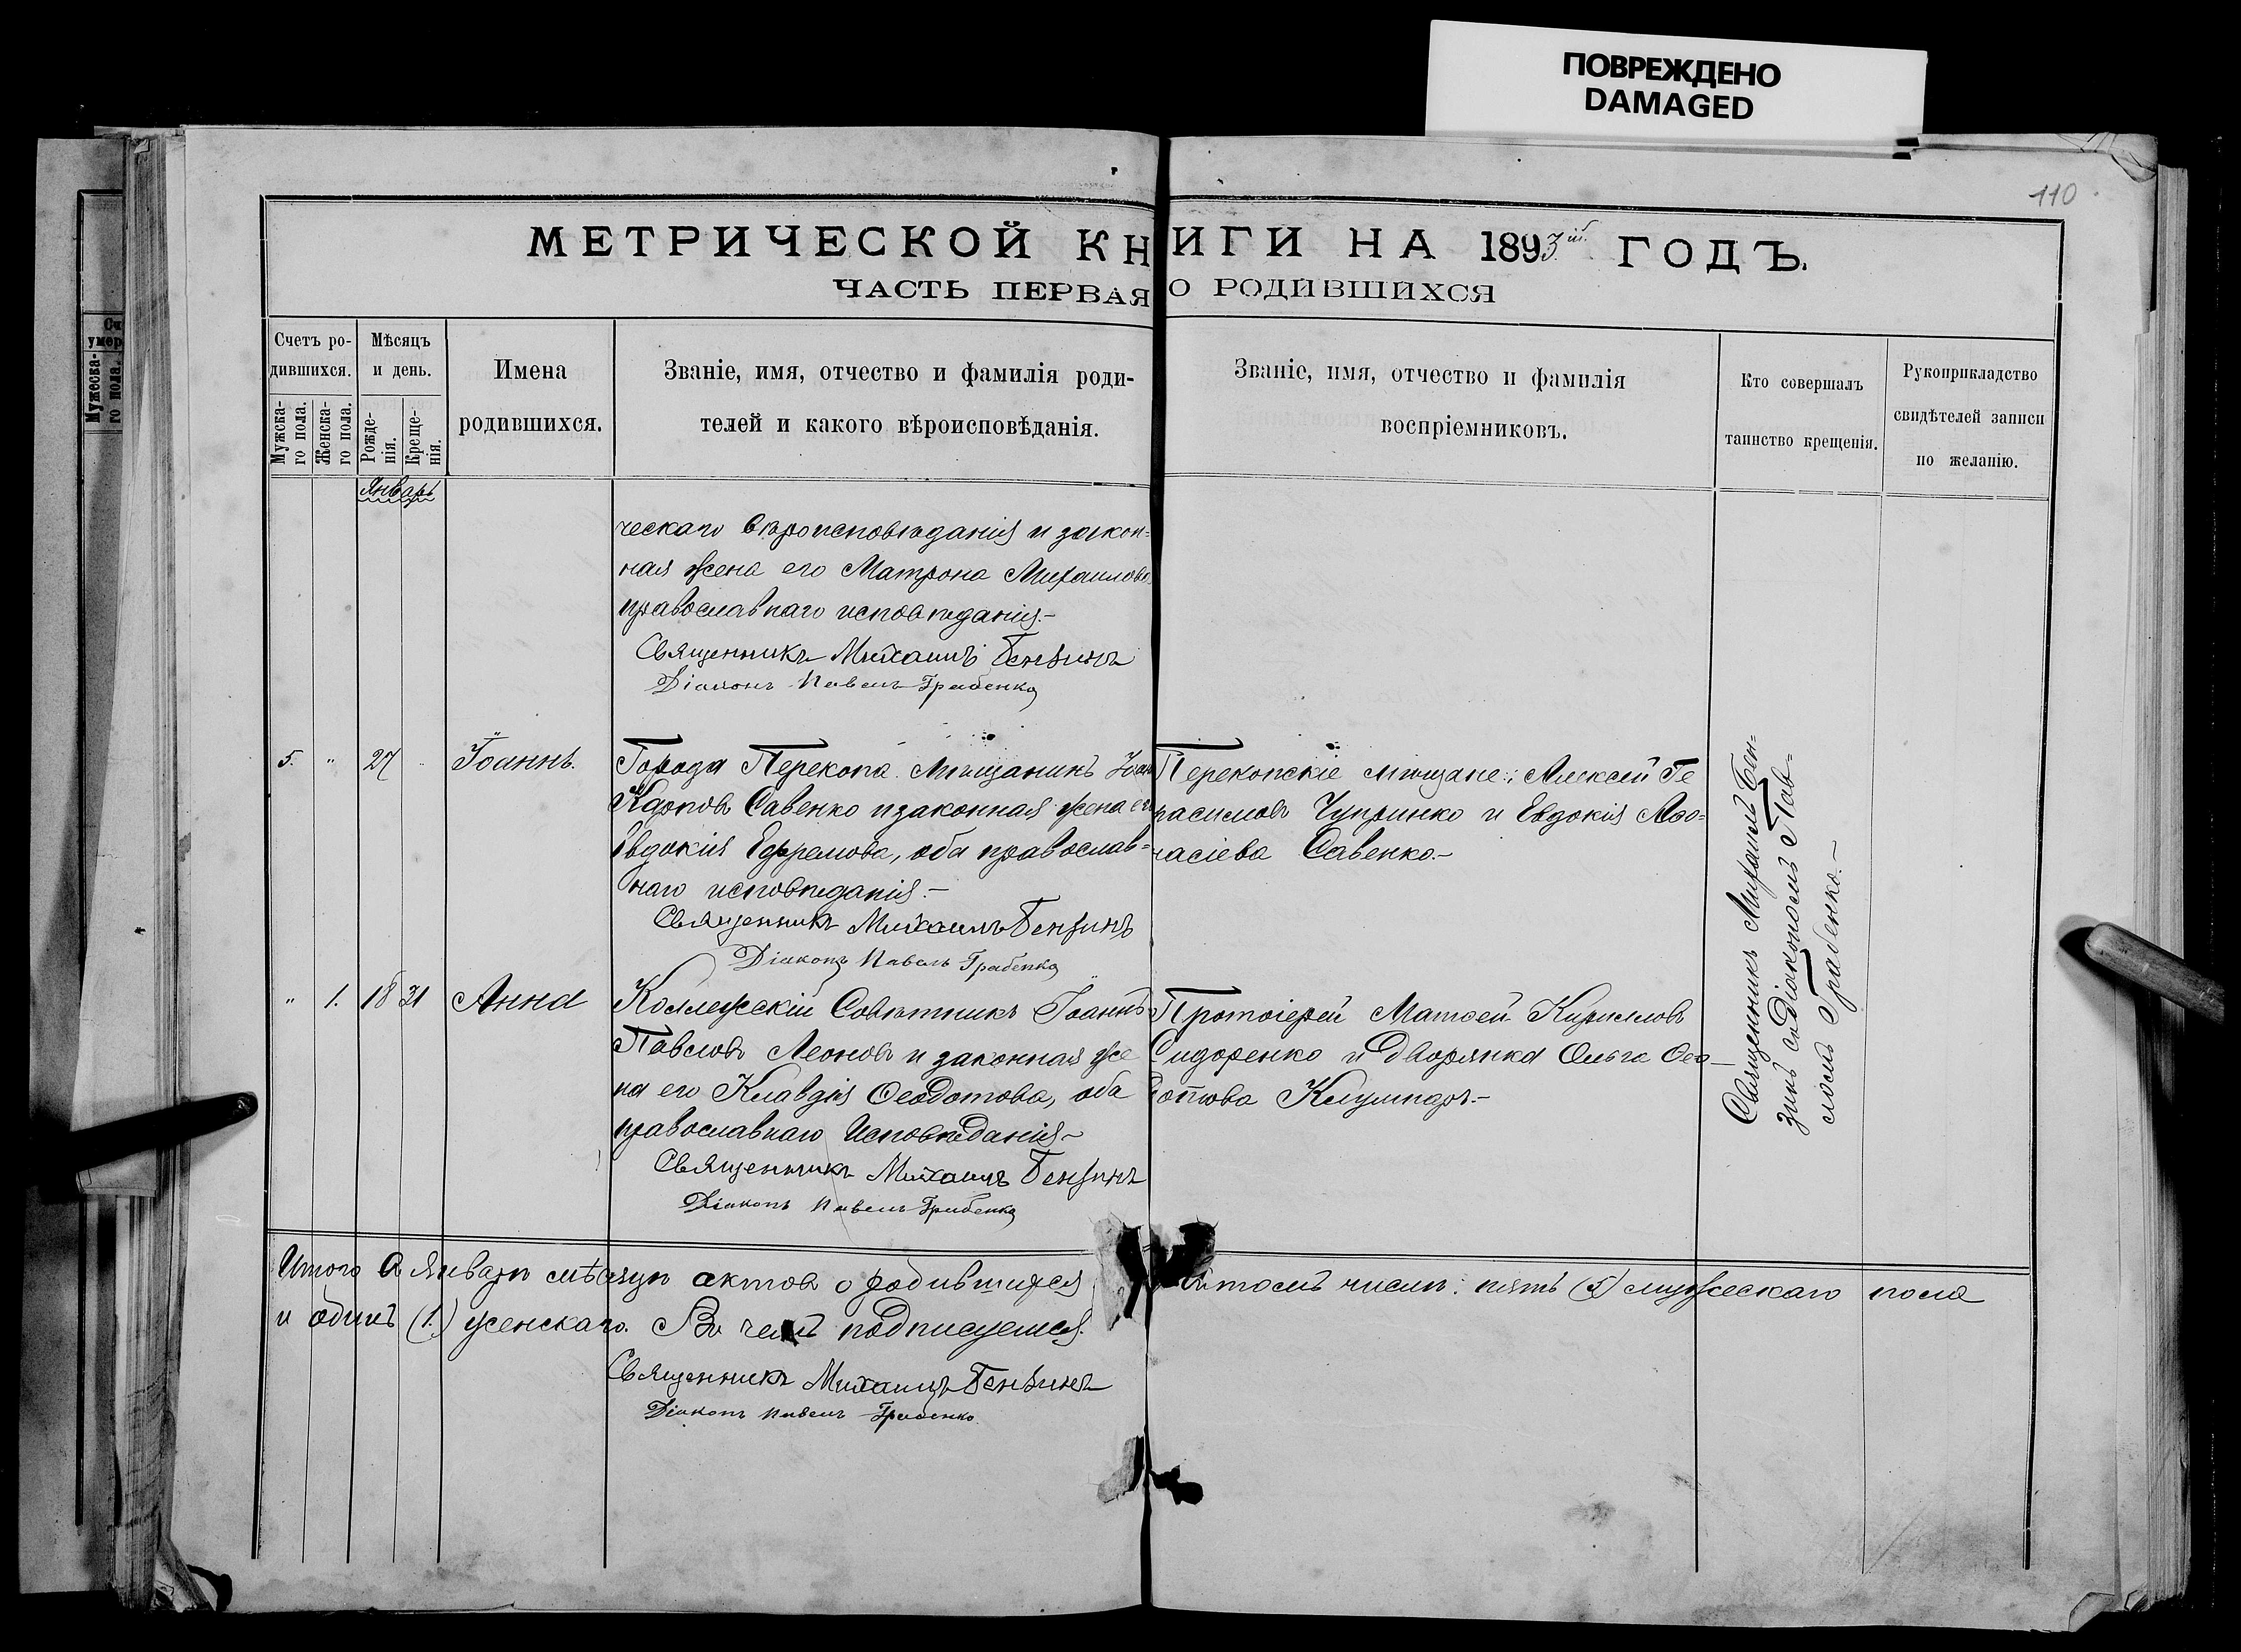 ПОВРЕЖДЕНО
DAMAGED
110
МЕТРИЧЕСКОЙ КНИГИ НА 1893ій ГОДЪ.
ЧАСТЬ ПЕРВАЯ О РОДИВШИХСЯ
Счетъ ро-
дившихся.
Мужска-
го пола.
Женска-
го пола.
Мѣсяцъ
и день.
Рожде-
нія.
Креще-
нія.
Имена
родившихся.
Званіе, имя, отчество и фамилія роди-
телей и какого вѣроисповѣданія.
Званіе, имя, отчество и фамилія
воспріемниковъ.
Кто совершалъ
таинство крещенія.
Рукоприкладство
свидѣтелей записи
по желанію.
Январь
ческаго вѣроисповѣданія и закон=
ная жена его Матрона Михаилова
православнаго исповѣданія.-
Священникъ Михаилъ Бензинъ
Діаконъ Павелъ Грабенко
5. " 27 " Іоаннъ.
Города Перекопа мѣщанинъ Іоан
Карповъ Савенко и законная жена его
Евдокія Ефремова, оба православ=
наго исповѣданія.-
Священникъ Михаилъ Бензинъ
Діаконъ Павелъ Грабенко
Перекопскіе мѣщане: Алексѣй Ге
расимовъ Чупринко и Евдокія Аѳо=
насіева Савенко.-
" 1. 18 31 Анна
Коллежскій Совѣтникъ Іоаннъ
Павловъ Леоновъ и законная же
на его Клавдія Ѳеодотова, оба
православнаго исповѣданія-
Священникъ Михаилъ Бензинъ
Діаконъ Павелъ Грабенко
Протоіерей Матѳей Кирилловъ
Сидоренко и дворянка Ольга Ѳео-
дотова
Священникъ Михаилъ Бен-
зинъ съ Діакономъ Пав-
ломъ Грабенко.-
Итого въ Январѣ мѣсяцѣ актовъ о родившихся въ томъ числѣ: пять (5) мужескаго пола
и одинъ (1.) женскаго. Въ чемъ подписуемся.
Священникъ Михаилъ Бензинъ
Діаконъ Павелъ Грабенко.
Сч
умер
Мужеска-
го пола.